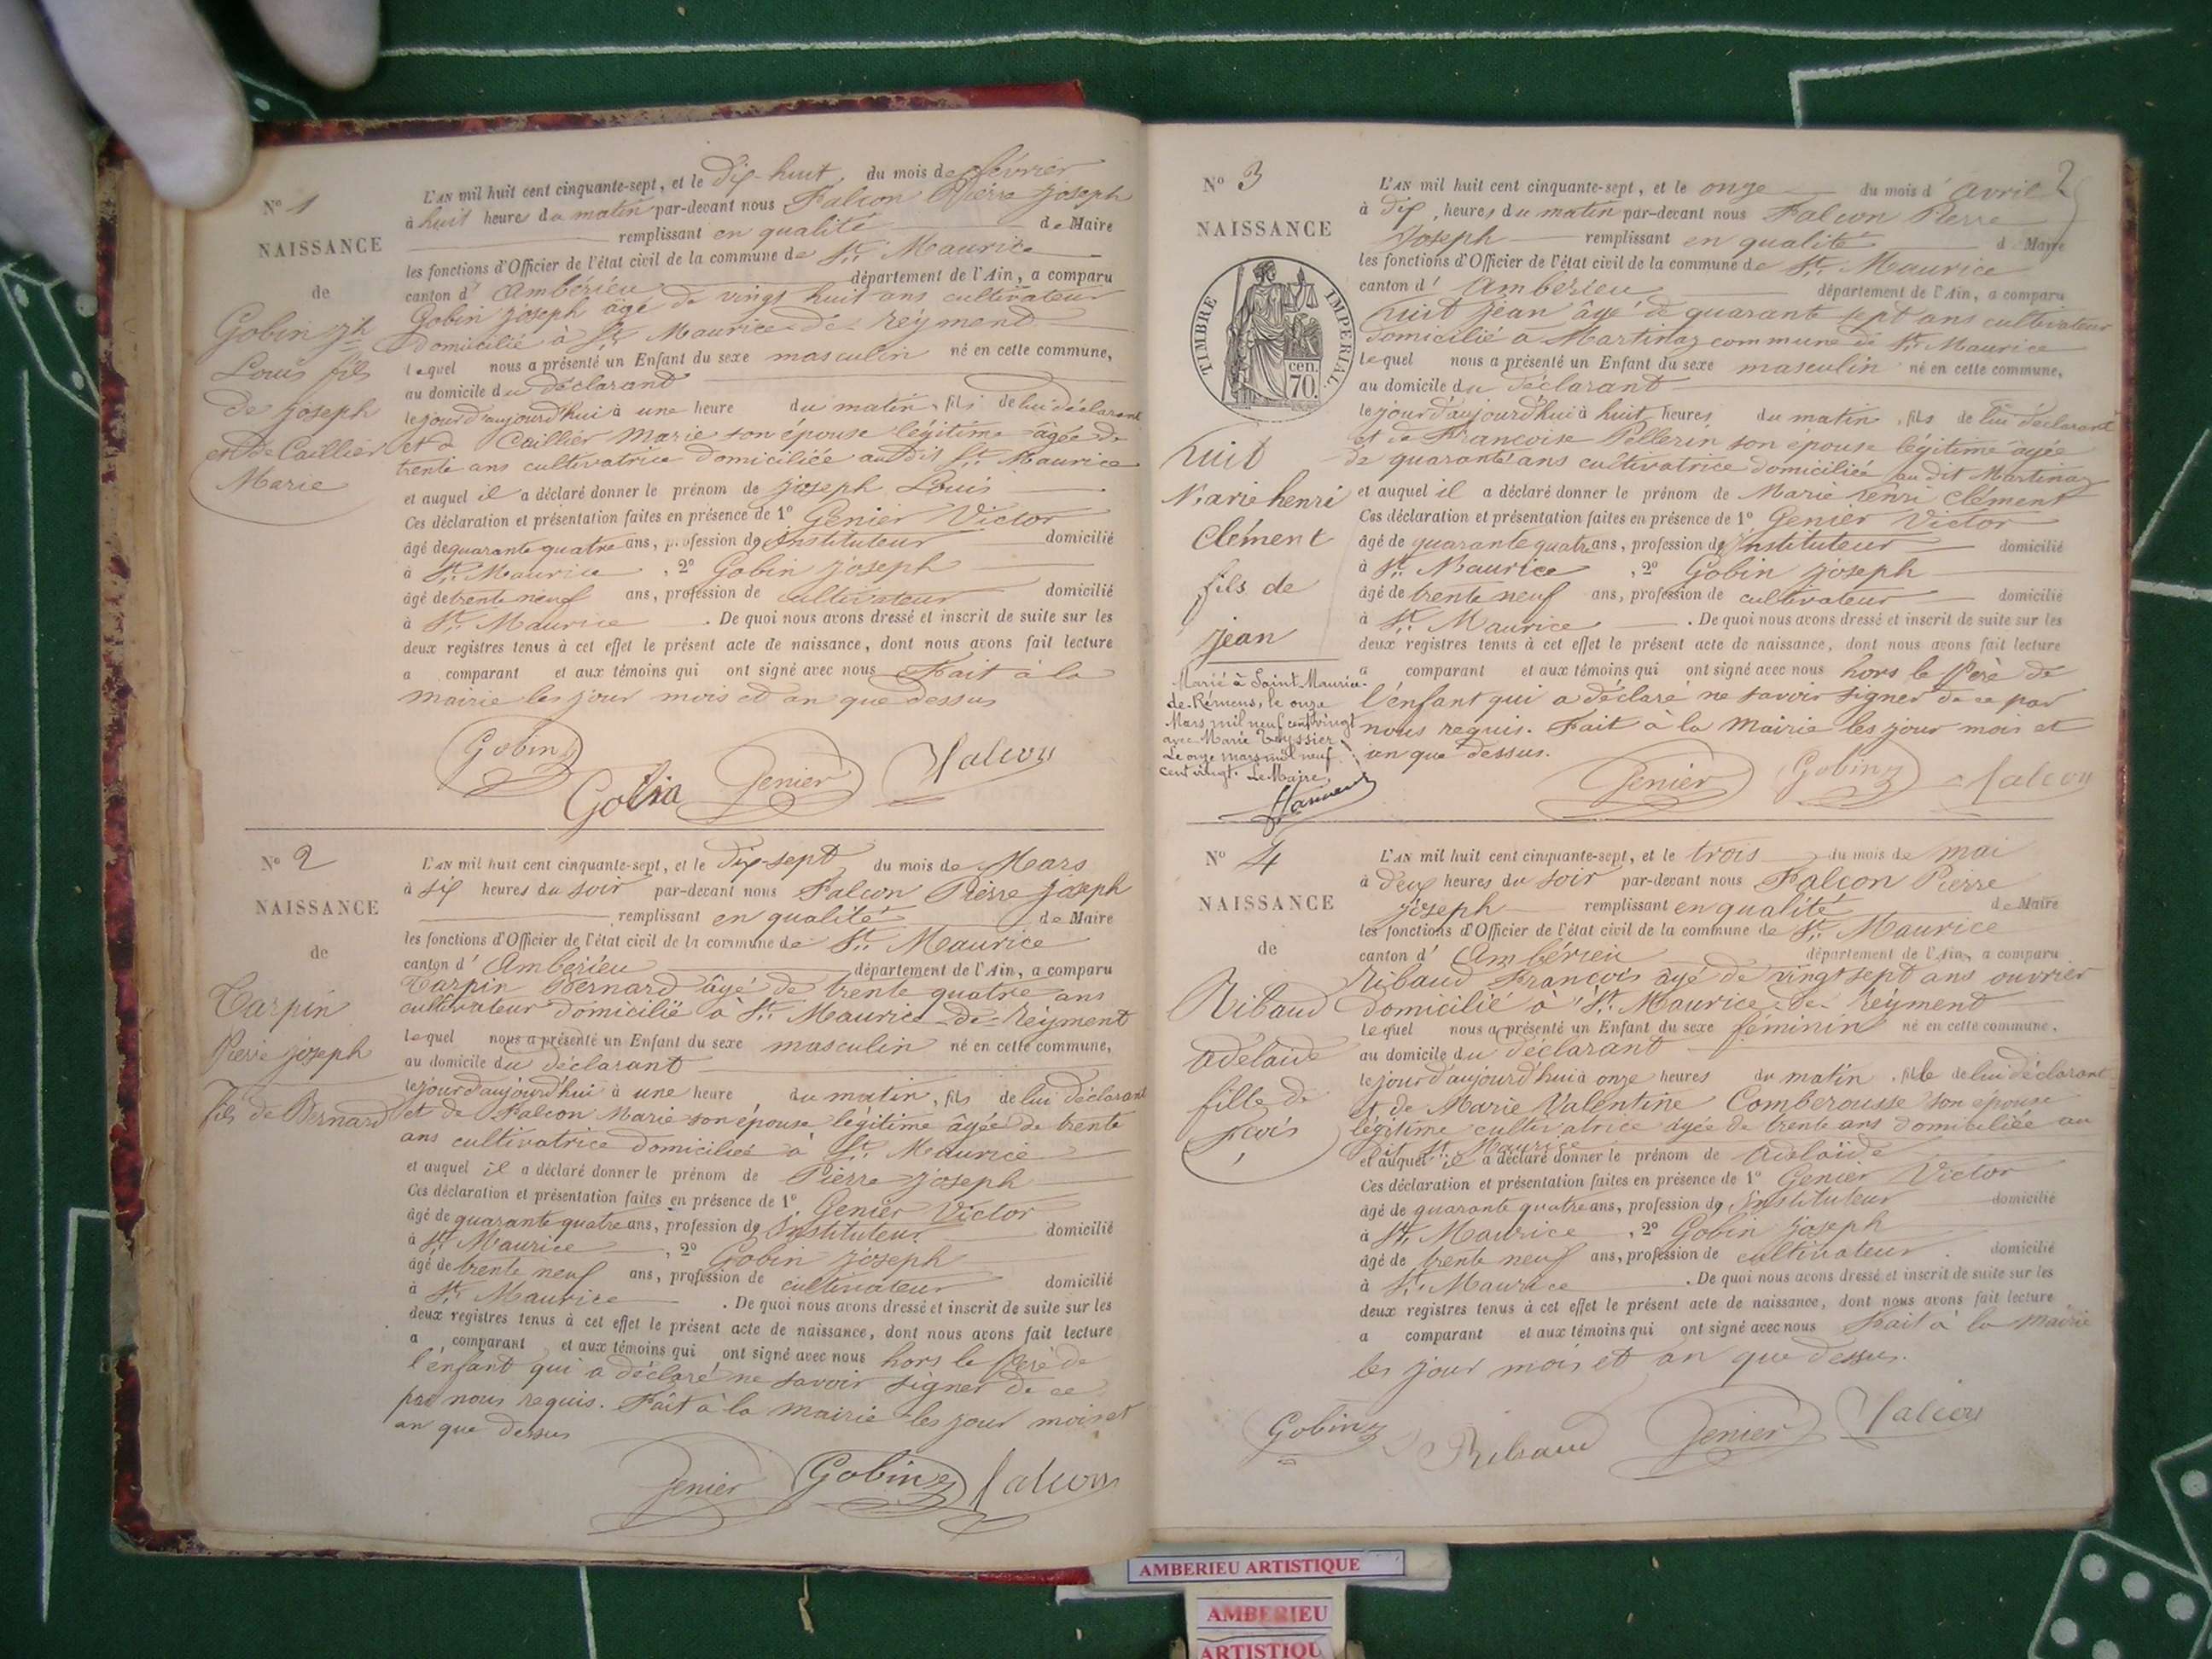 N° 1
NAISSANCE
de
Gobin jh
Louis fils
de joseph
et de Caillier
Marie
L'AN mil huit cent cinquante-sept, et le dix-huit du mois de février
à huit heures du matin par-devant nous Falcon Pierre joseph
remplissant en qualité de Maire
les fonctions d'Officier de l'état civil de la commune de St. Maurice
canton d'Ambérieu département de l'Ain, a comparu
Gobin joseph âgé de vingt huit ans cultivateur
domicilié à St. Maurice-de-Reyment
lequel nous a présenté un Enfant du sexe masculin né en cette commune,
au domicile du déclarant
le jour d'aujourd'hui à une heure du matin, fils de lui déclarant
et de Caillier Marie son épouse légitime âgée de
trente ans cultivatrice domiciliée au dit St. Maurice
et auquel il a déclaré donner le prénom de joseph Louis
Ces déclaration et présentation faites en présence de 1° Genier Victor
âgé de quarante quatre ans, profession d'Instituteur domicilié
à St. Maurice, 2° Gobin joseph
âgé de trente neuf ans, profession de cultivateur domicilié
à St. Maurice. De quoi nous avons dressé et inscrit de suite sur les
deux registres tenus à cet effet le présent acte de naissance, dont nous avons fait lecture
a comparant et aux témoins qui ont signé avec nous Fait à la
mairie les jour mois et an que dessus
Gobin
Gobin Genier Falcon
N° 2
NAISSANCE
de
Carpin
Pierre joseph
fils de Bernard
L'AN mil huit cent cinquante-sept, et le dix-sept du mois de Mars
à six heures du soir par-devant nous Falcon Pierre joseph
remplissant en qualité de Maire
les fonctions d'Officier de l'état civil de la commune de St. Maurice
canton d'Ambérieu département de l'Ain, a comparu
Carpin Bernard âgé de trente quatre ans
cultivateur domicilié à St. Maurice-de-Reyment
lequel nous a présenté un Enfant du sexe masculin né en cette commune,
au domicile du déclarant
le jour d'aujourd'hui à une heure du matin, fils de lui déclarant
et de Falcon Marie son épouse légitime âgée de trente
ans cultivatrice domiciliée à St. Maurice
et auquel il a déclaré donner le prénom de Pierre joseph
Ces déclaration et présentation faites en présence de 1° Genier Victor
âgé de quarante quatre ans, profession d'Instituteur domicilié
à St. Maurice, 2° Gobin joseph
âgé de trente neuf ans, profession de cultivateur domicilié
à St. Maurice. De quoi nous avons dressé et inscrit de suite sur les
deux registres tenus à cet effet le présent acte de naissance, dont nous avons fait lecture
a comparant et aux témoins qui ont signé avec nous hors le Père de
l'enfant qui a déclaré ne savoir signer de ce
par nous requis. Fait à la mairie les jour mois et
an que dessus
Genier Gobin Falcon
2
N° 3
NAISSANCE
TIMBRE IMPERIAL
70 cen.
nuit
Marie henri
Clément
fils de
jean
Marié à Saint-Maurice-
de-Rémens, le onze
Mars mil neuf cent vingt
avec Marie Teyssier
Le onze mars mil neuf
cent vingt. Le Maire,
L'AN mil huit cent cinquante-sept, et le onze du mois d'avril
à dix heures du matin par-devant nous Falcon Pierre
Joseph remplissant en qualité d Maire
les fonctions d'Officier de l'état civil de la commune de St. Maurice
canton d'Ambérieu département de l'Ain, a comparu
nuit jean âgé de quarante sept ans cultivateur
domicilié à Martinaz commune de St. Maurice
lequel nous a présenté un Enfant du sexe masculin né en cette commune,
au domicile du déclarant
le jour d'aujourd'hui à huit heures du matin, fils de lui déclarant
et de Francoise Pellerin son épouse légitime âgée
de quarante ans cultivatrice domiciliée au dit Martinaz
et auquel il a déclaré donner le prénom de Marie henri Clément
Ces déclaration et présentation faites en présence de 1° Genier Victor
âgé de quarante quatre ans, profession d'Instituteur domicilié
à St. Maurice, 2° Gobin joseph
âgé de trente neuf ans, profession de cultivateur domicilié
à St. Maurice. De quoi nous avons dressé et inscrit de suite sur les
deux registres tenus à cet effet le présent acte de naissance, dont nous avons fait lecture
a comparant et aux témoins qui ont signé avec nous hors le Père de
l'enfant qui a déclaré ne savoir signer de ce par
nous requis. Fait à la Mairie les jour mois et
an que dessus.
Genier Gobin Falcon
N° 4
NAISSANCE
de
Ribaud
adelaide
fille de
fcois
L'AN mil huit cent cinquante-sept, et le trois du mois de mai
à deux heures du soir par-devant nous Falcon Pierre
joseph remplissant en qualité de Maire
les fonctions d'Officier de l'état civil de la commune de St. Maurice
canton d'Ambérieu département de l'Ain, a comparu
Ribaud Francois âgé de vingt sept ans ouvrier
domicilié à St. Maurice-de-Reyment
lequel nous a présenté un Enfant du sexe féminin né en cette commune,
au domicile du déclarant
le jour d'aujourd'hui à onze heures du matin, fille de lui déclarant
et de Marie Valentine Comberousse son epouse
légitime cultivatrice âgée de trente ans domiciliée au
dit St. Maurice
et auquel il a déclaré donner le prénom de adelaïde
Ces déclaration et présentation faites en présence de 1° Genier Victor
âgé de quarante quatre ans, profession d'Instituteur domicilié
à St. Maurice, 2° Gobin joseph
âgé de trente neuf ans, profession de cultivateur domicilié
à St. Maurice. De quoi nous avons dressé et inscrit de suite sur les
deux registres tenus à cet effet le présent acte de naissance, dont nous avons fait lecture
a comparant et aux témoins qui ont signé avec nous Fait à la Mairie
les jour mois et an que dessus.
Gobin Ribaud Genier Falcon
AMBERIEU ARTISTIQUE
AMBERIEU
ARTISTIQU